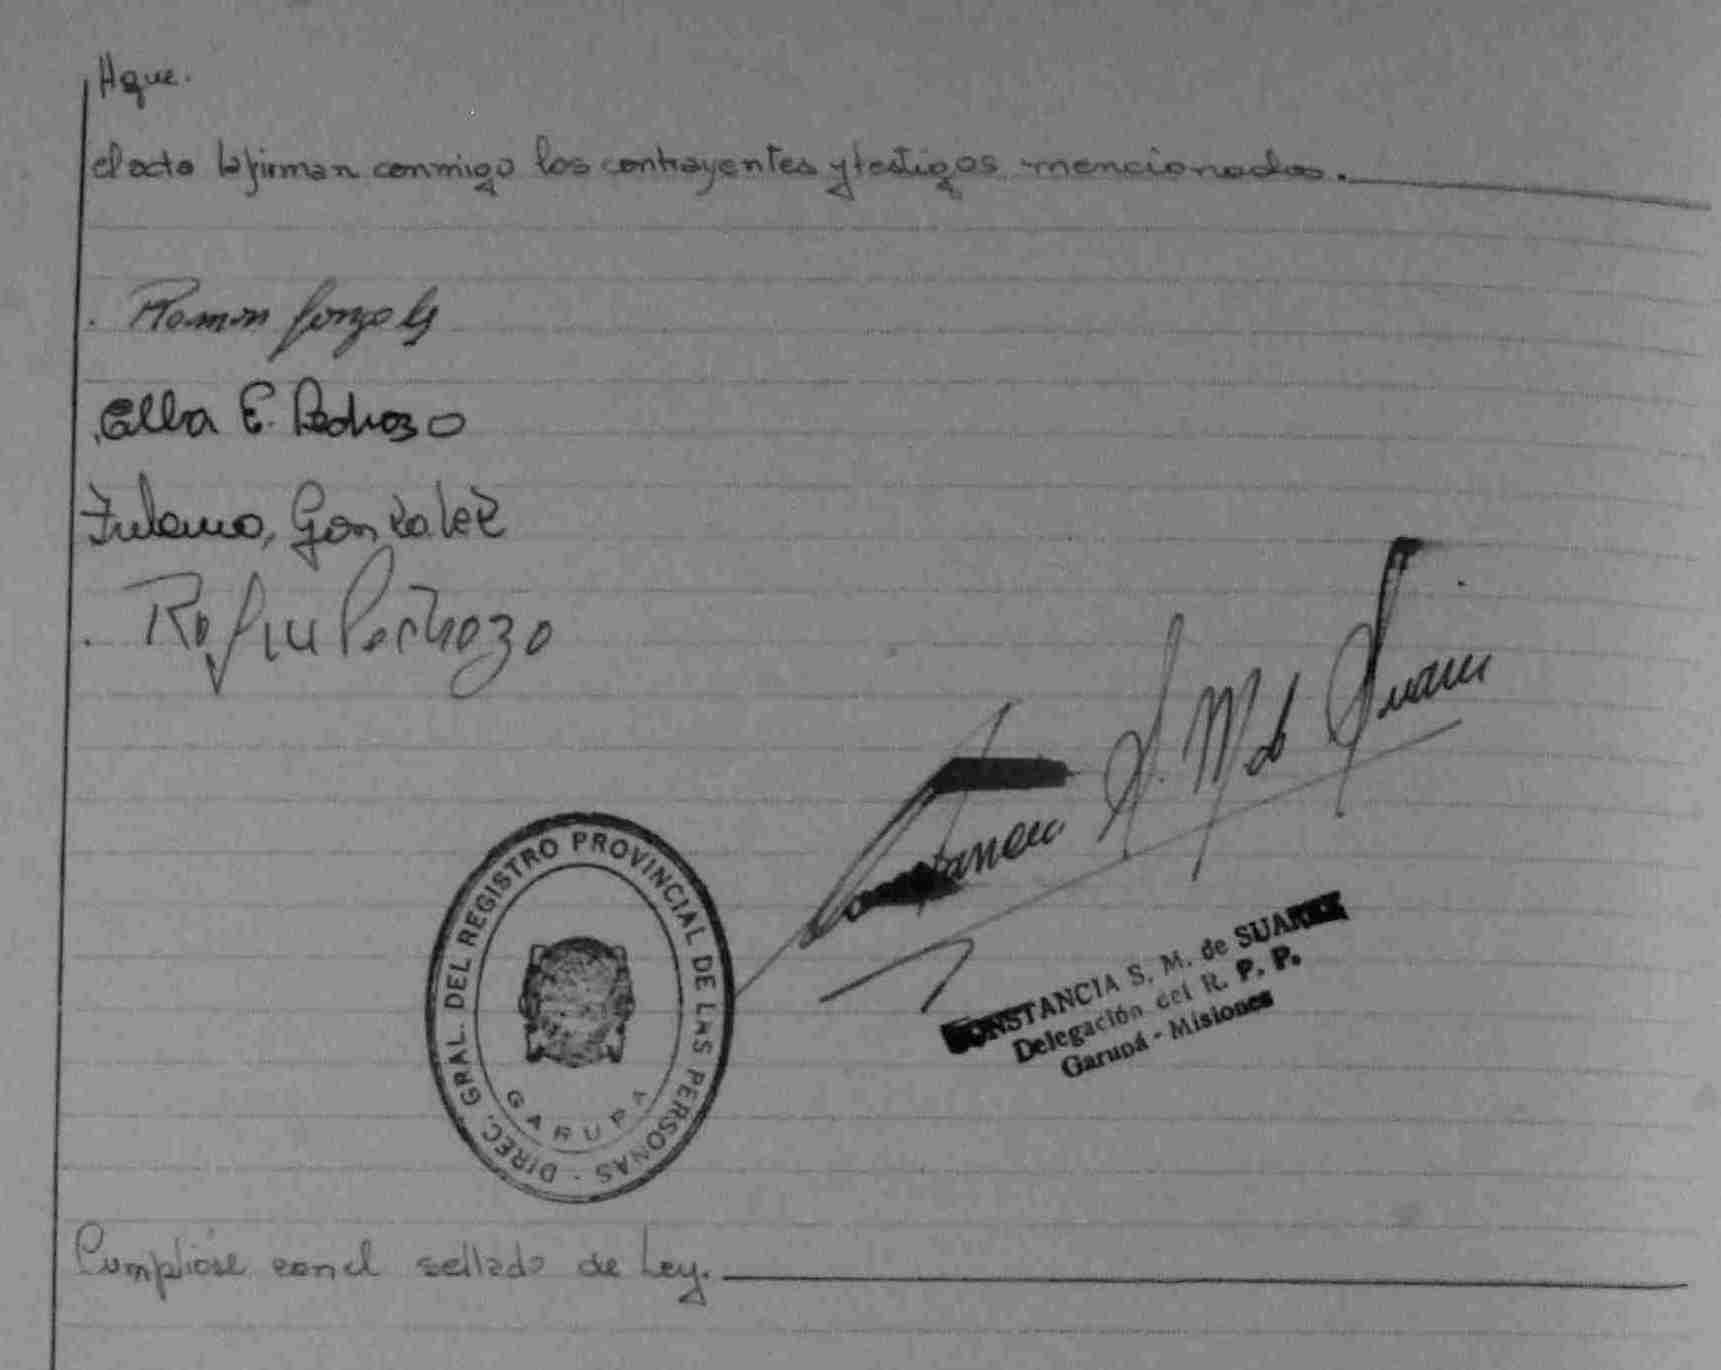 Aque.
el acto la firman conmigo los contrayentes y testigos mencionados.
Ramon Gonzalez
Elba E. Pedrozo
Gonzalez
Pedrozo
S. M. de Suarez
DIREC. GRAL. DEL REGISTRO PROVINCIAL DE LAS PERSONAS -
GARUPA
CONSTANCIA S. M. de SUAREZ
Delegación del R. P. P.
Garupá - Misiones
Cumplióse con el sellado de Ley.